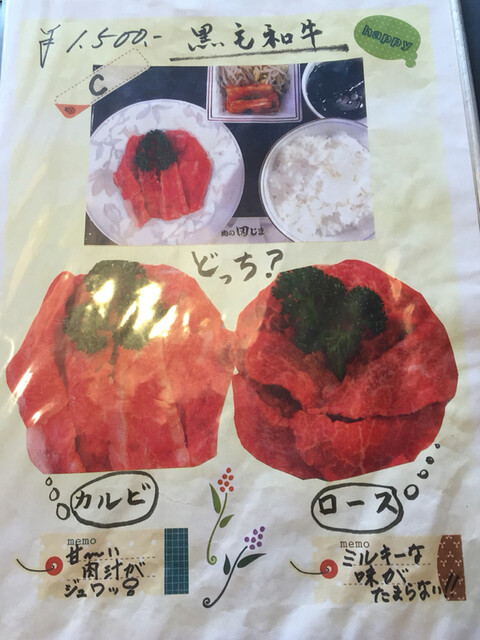 ¥1.500.- 黒毛和牛
happy
C
肉の田じま
どっち?
カルビ
ロース
memo
甘〜い
肉汁が
ジュワッ
memo
ミルキーな
味が
たまらない!!